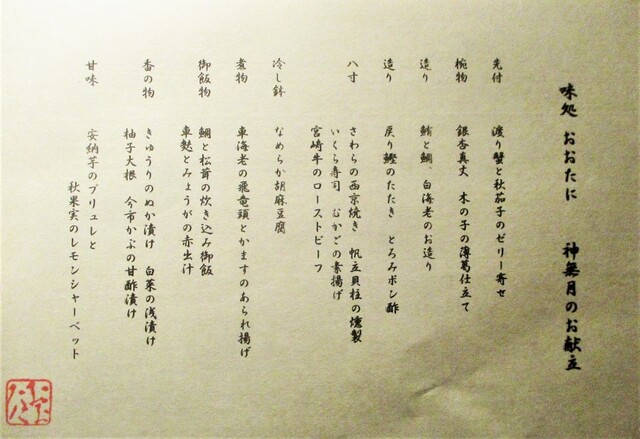 味処 おおたに 神無月のお献立
先付 渡り蟹と秋茄子のゼリー寄せ
椀物 銀杏真丈 木の子の薄葛仕立て
造り 鯵と鯛、白海老のお造り
造り 戻り鰹のたたき とろみポン酢
八寸 さわらの西京焼き 帆立貝柱の燻製
いくら寿司 むかごの素揚げ
宮崎牛のローストビーフ
冷し鉢 なめらか胡麻豆腐
煮物 車海老の飛竜頭とかますのあられ揚げ
御飯物 鯛と松茸の炊き込み御飯
車麩とみょうがの赤出汁
香の物 きゅうりのぬか漬け 白菜の浅漬け
柚子大根 今市かぶの甘酢漬け
甘味 安納芋のブリュレと
秋果実のレモンシャーベット